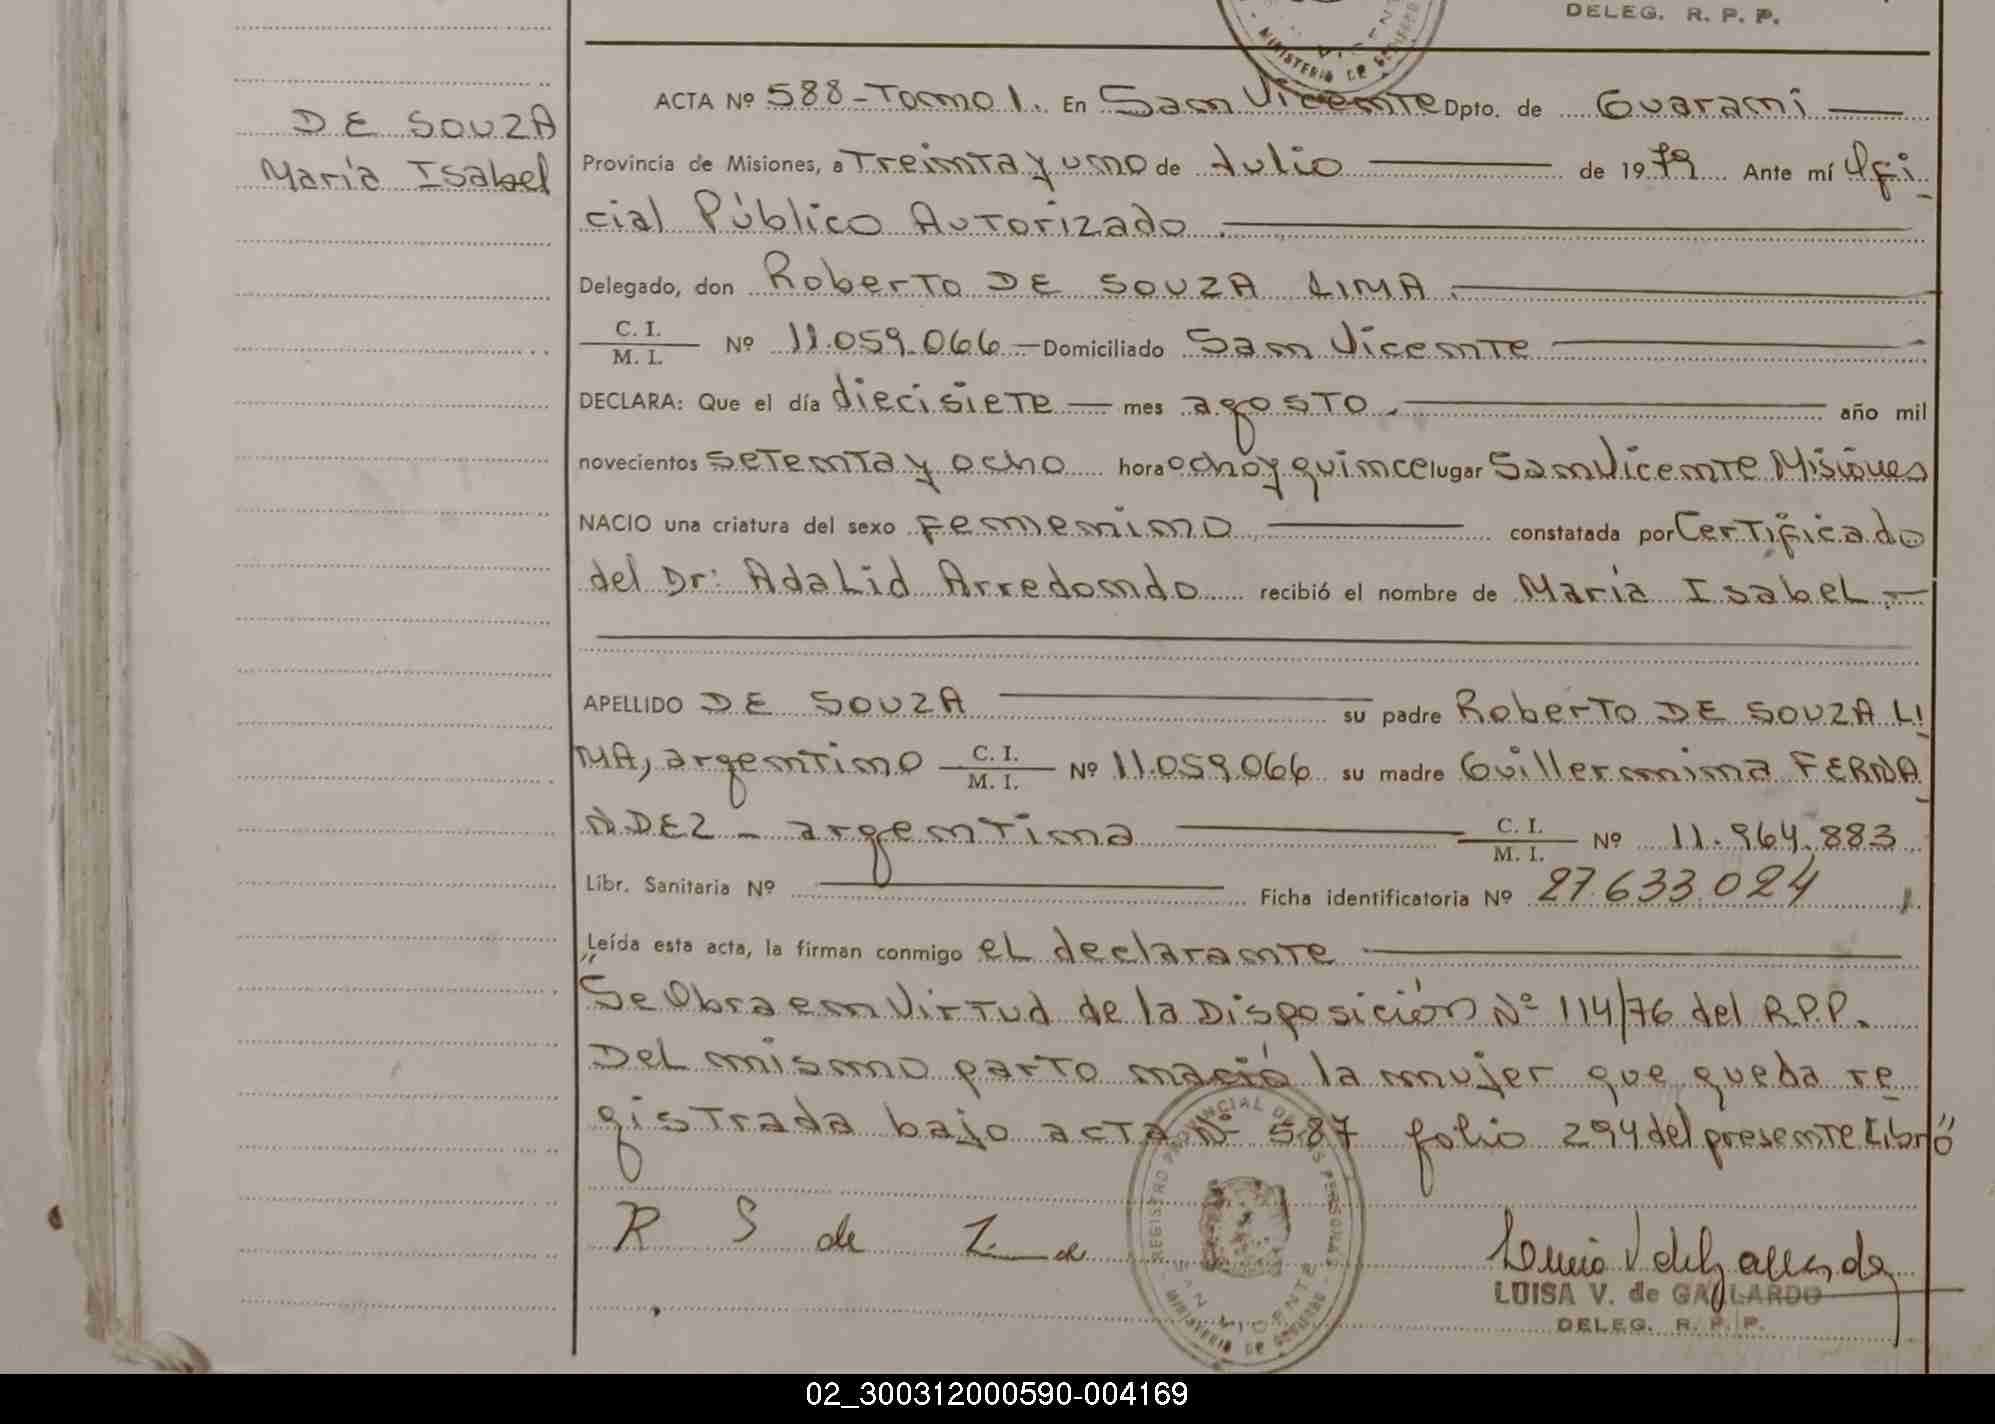 DELEG. R. P. P.
MINISTERIO DE GOBIERNO
DE SOUZA
María Isabel
ACTA Nº 588-Tomo 1. En San Vicente Dpto. de Guaraní
Provincia de Misiones, a Treinta y uno de Julio de 1979 Ante mí Ofi
cial Público Autorizado
Delegado, don Roberto DE SOUZA LIMA.
C. I.
M. I. Nº 11.059.066 Domiciliado San Vicente
DECLARA: Que el día diecisiete mes agosto año mil
novecientos setenta y ocho hora ocho y quince lugar San Vicente Misiones
NACIO una criatura del sexo femenino constatada por Certificado
del Dr: Adalid Arredondo recibió el nombre de María Isabel.-
APELLIDO DE SOUZA su padre Roberto DE SOUZA LI
MA, argentino C. I. M. I. Nº 11.059.066 su madre Guillermina FERNA
NDEZ - argentina C. I. M. I. Nº 11.964.883
Libr. Sanitaria Nº Ficha identificatoria Nº 27.633.024
Leída esta acta, la firman conmigo el declarante
"Se Obra en Virtud de la Disposición Nº 114/76 del R.P.P.
Del mismo parto nació la mujer que queda re
gistrada bajo acta Nº 587 folio 294 del presente Libro"
R S de L
REGISTRO PROVINCIAL DE LAS PERSONAS
SAN VICENTE
MINISTERIO DE GOBIERNO
LUISA V. de GALLARDO
DELEG. R. P. P.
02_300312000590-004169